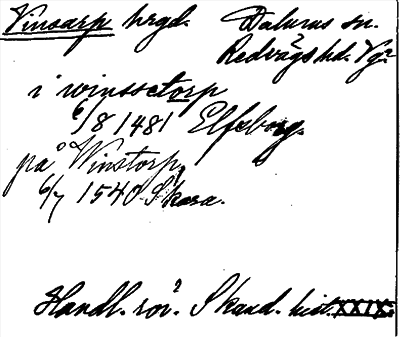 Vinsarp hrgd. Dalums sn.
Redvägs hd. Vg.
i winssetorp
6/8 1481 Elfsborg.
på Winstorp,
6/7 1540. Skara.
Handl. rör. Skand. hist. XXIX.